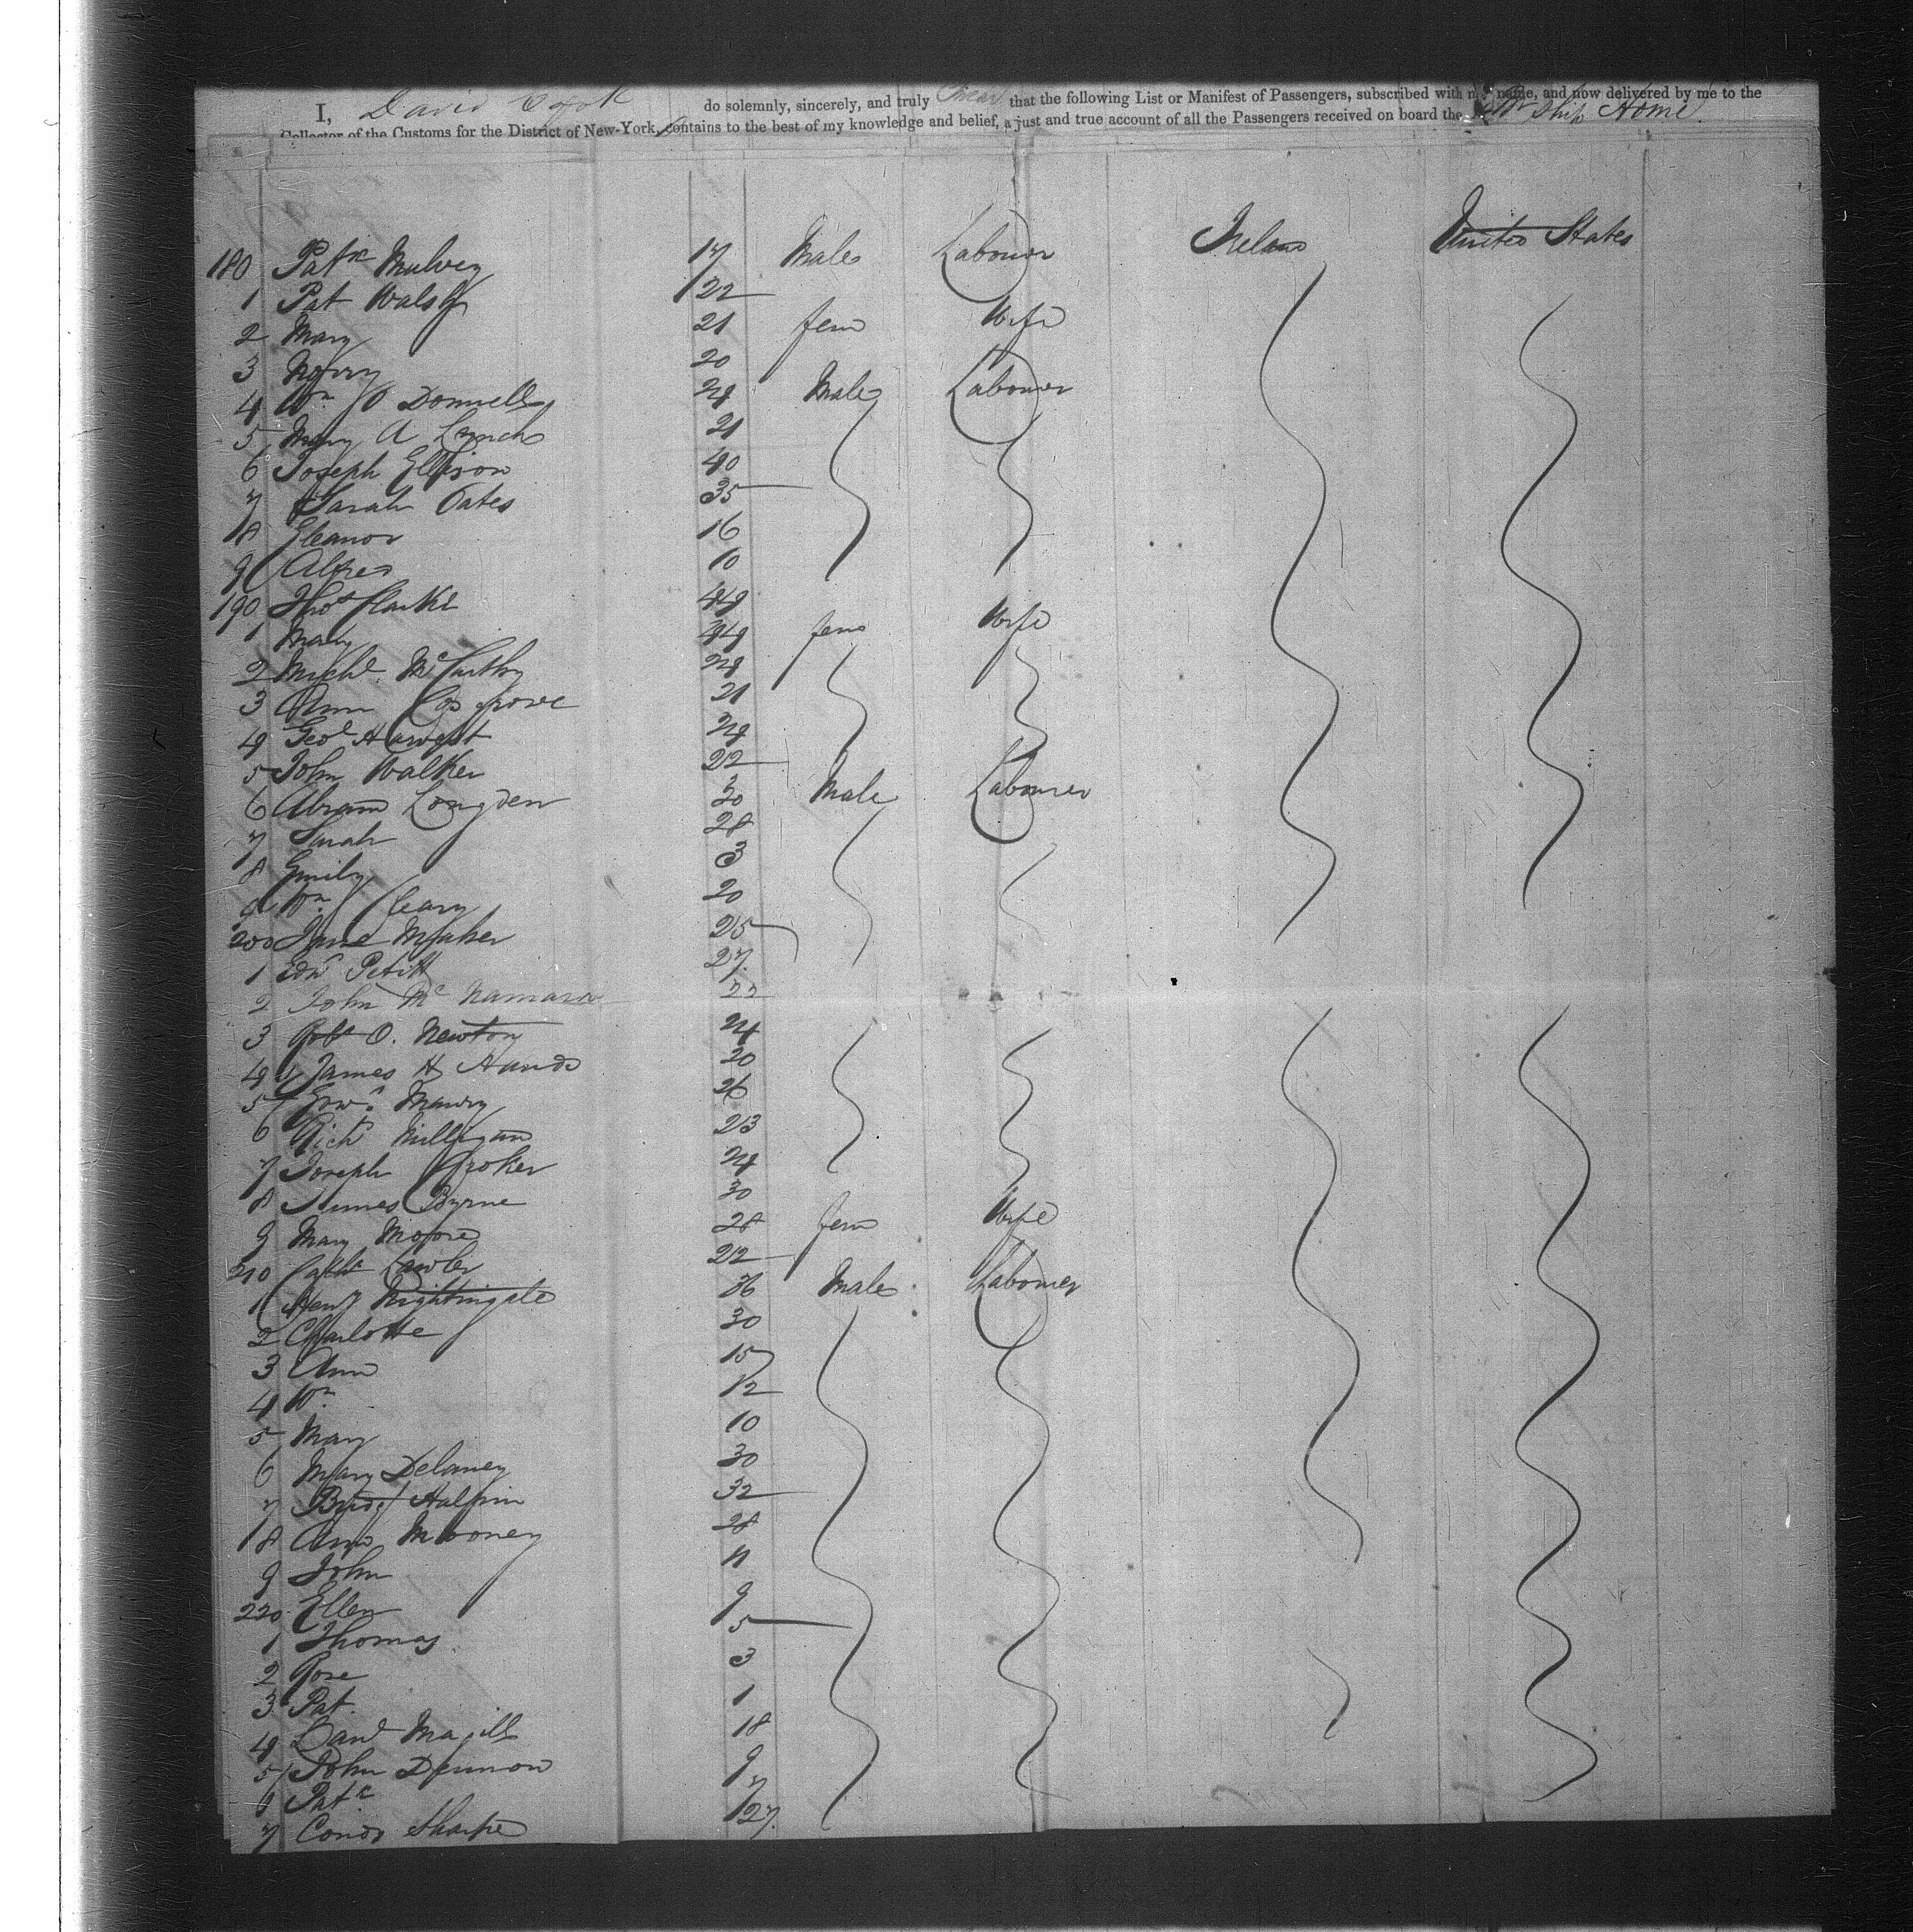 I, David Cook do solemnly, sincerely, and truly Swear that the following List or Manifest of Passengers, subscribed with my name, and now delivered by me to the
Collector of the Customs for the District of New-York, contains to the best of my knowledge and belief, a just and true account of all the Passengers received on board the Ship Home.
180 Patk Mulvey 17 Male Labourer Ireland United States
1 Pat Walsh 22
2 Mary 21 fem Wife
3 20
4 Wm O Donnell 24 Male Labourer
5 Mary A Lynch 21
6 Joseph Ellison 40
7 Sarah Oates 35
8 Eleanor 16
9 Alfred 10
190 Thos Clarke 44
1 Mary 44 fem Wife
2 Michl McCarthy 24
3 Ann Cosgrove 21
4 Geo Harvest 24
5 John Walker 22
6 Abram Longden 30 Male Labourer
7 Sarah 28
8 Emily 3
9 Wm Cleary 20
200 Jane Meaker 25
1 Edwd Petitt 27
2 John Mc Namara 22
3 Robt O. Newton 24
4 James H Hands 20
5 Edwd Mawry 26
6 Richd Milligan 23
7 Joseph Croker 24
8 James Byrne 30
9 Mary Moore 28 fem Wife
210 Cath Lawler 22
1 Heny Nightingale 36 Male Labourer
2 Charlotte 30
3 Ann 15
4 Wm 12
5 Mary 10
6 Mary Delaney 30
7 Bridgt Halpin 32
18 Ann Mooney 28
9 John 11
220 Ellen 9
1 Thomas 5
2 Rose 3
3 Pat. 1
4 Danl Magill 18
5 John Dennon 9
6 Patk 7
7 Sharpe 27